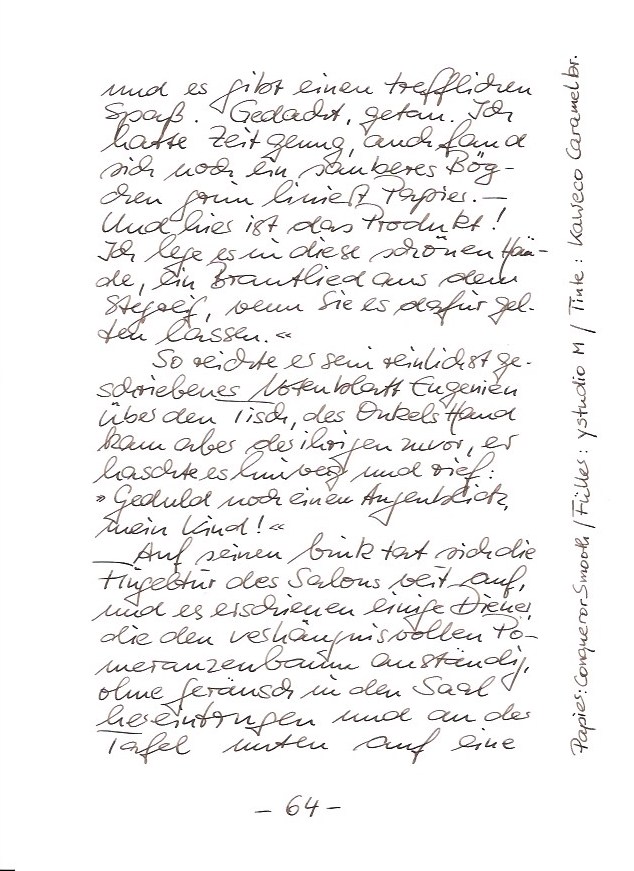 und es gibt einen trefflichen
Spaß. Gedacht, getan. Ich
hatte Zeit genug, auch fand
sich noch ein sauberes Bög-
chen grün liniert Papier. —
Und hier ist das Produkt!
Ich lege es in diese schönen Hän-
de, ein Brautlied aus dem
Stegreif, wenn Sie es dafür gel-
ten lassen.«
So reichte er sein reinlichst ge-
schriebenes Notenblatt Eugenien
über den Tisch, des Onkels Hand
kam aber der ihrigen zuvor, er
haschte es hinweg und rief:
»Geduld noch einen Augenblick,
mein Kind!«
Auf seinen Wink tat sich die
Flügeltür des Salons weit auf,
und es erschienen einige Diener,
die den verhängnisvollen Po-
meranzenbaum anständig,
ohne Geräusch in den Saal
hereintrugen und an der
Tafel unten auf eine
- 64 -
Papier: Conqueror Smooth / Füller: ystudio M / Tinte: Kaweco Caramelbr.